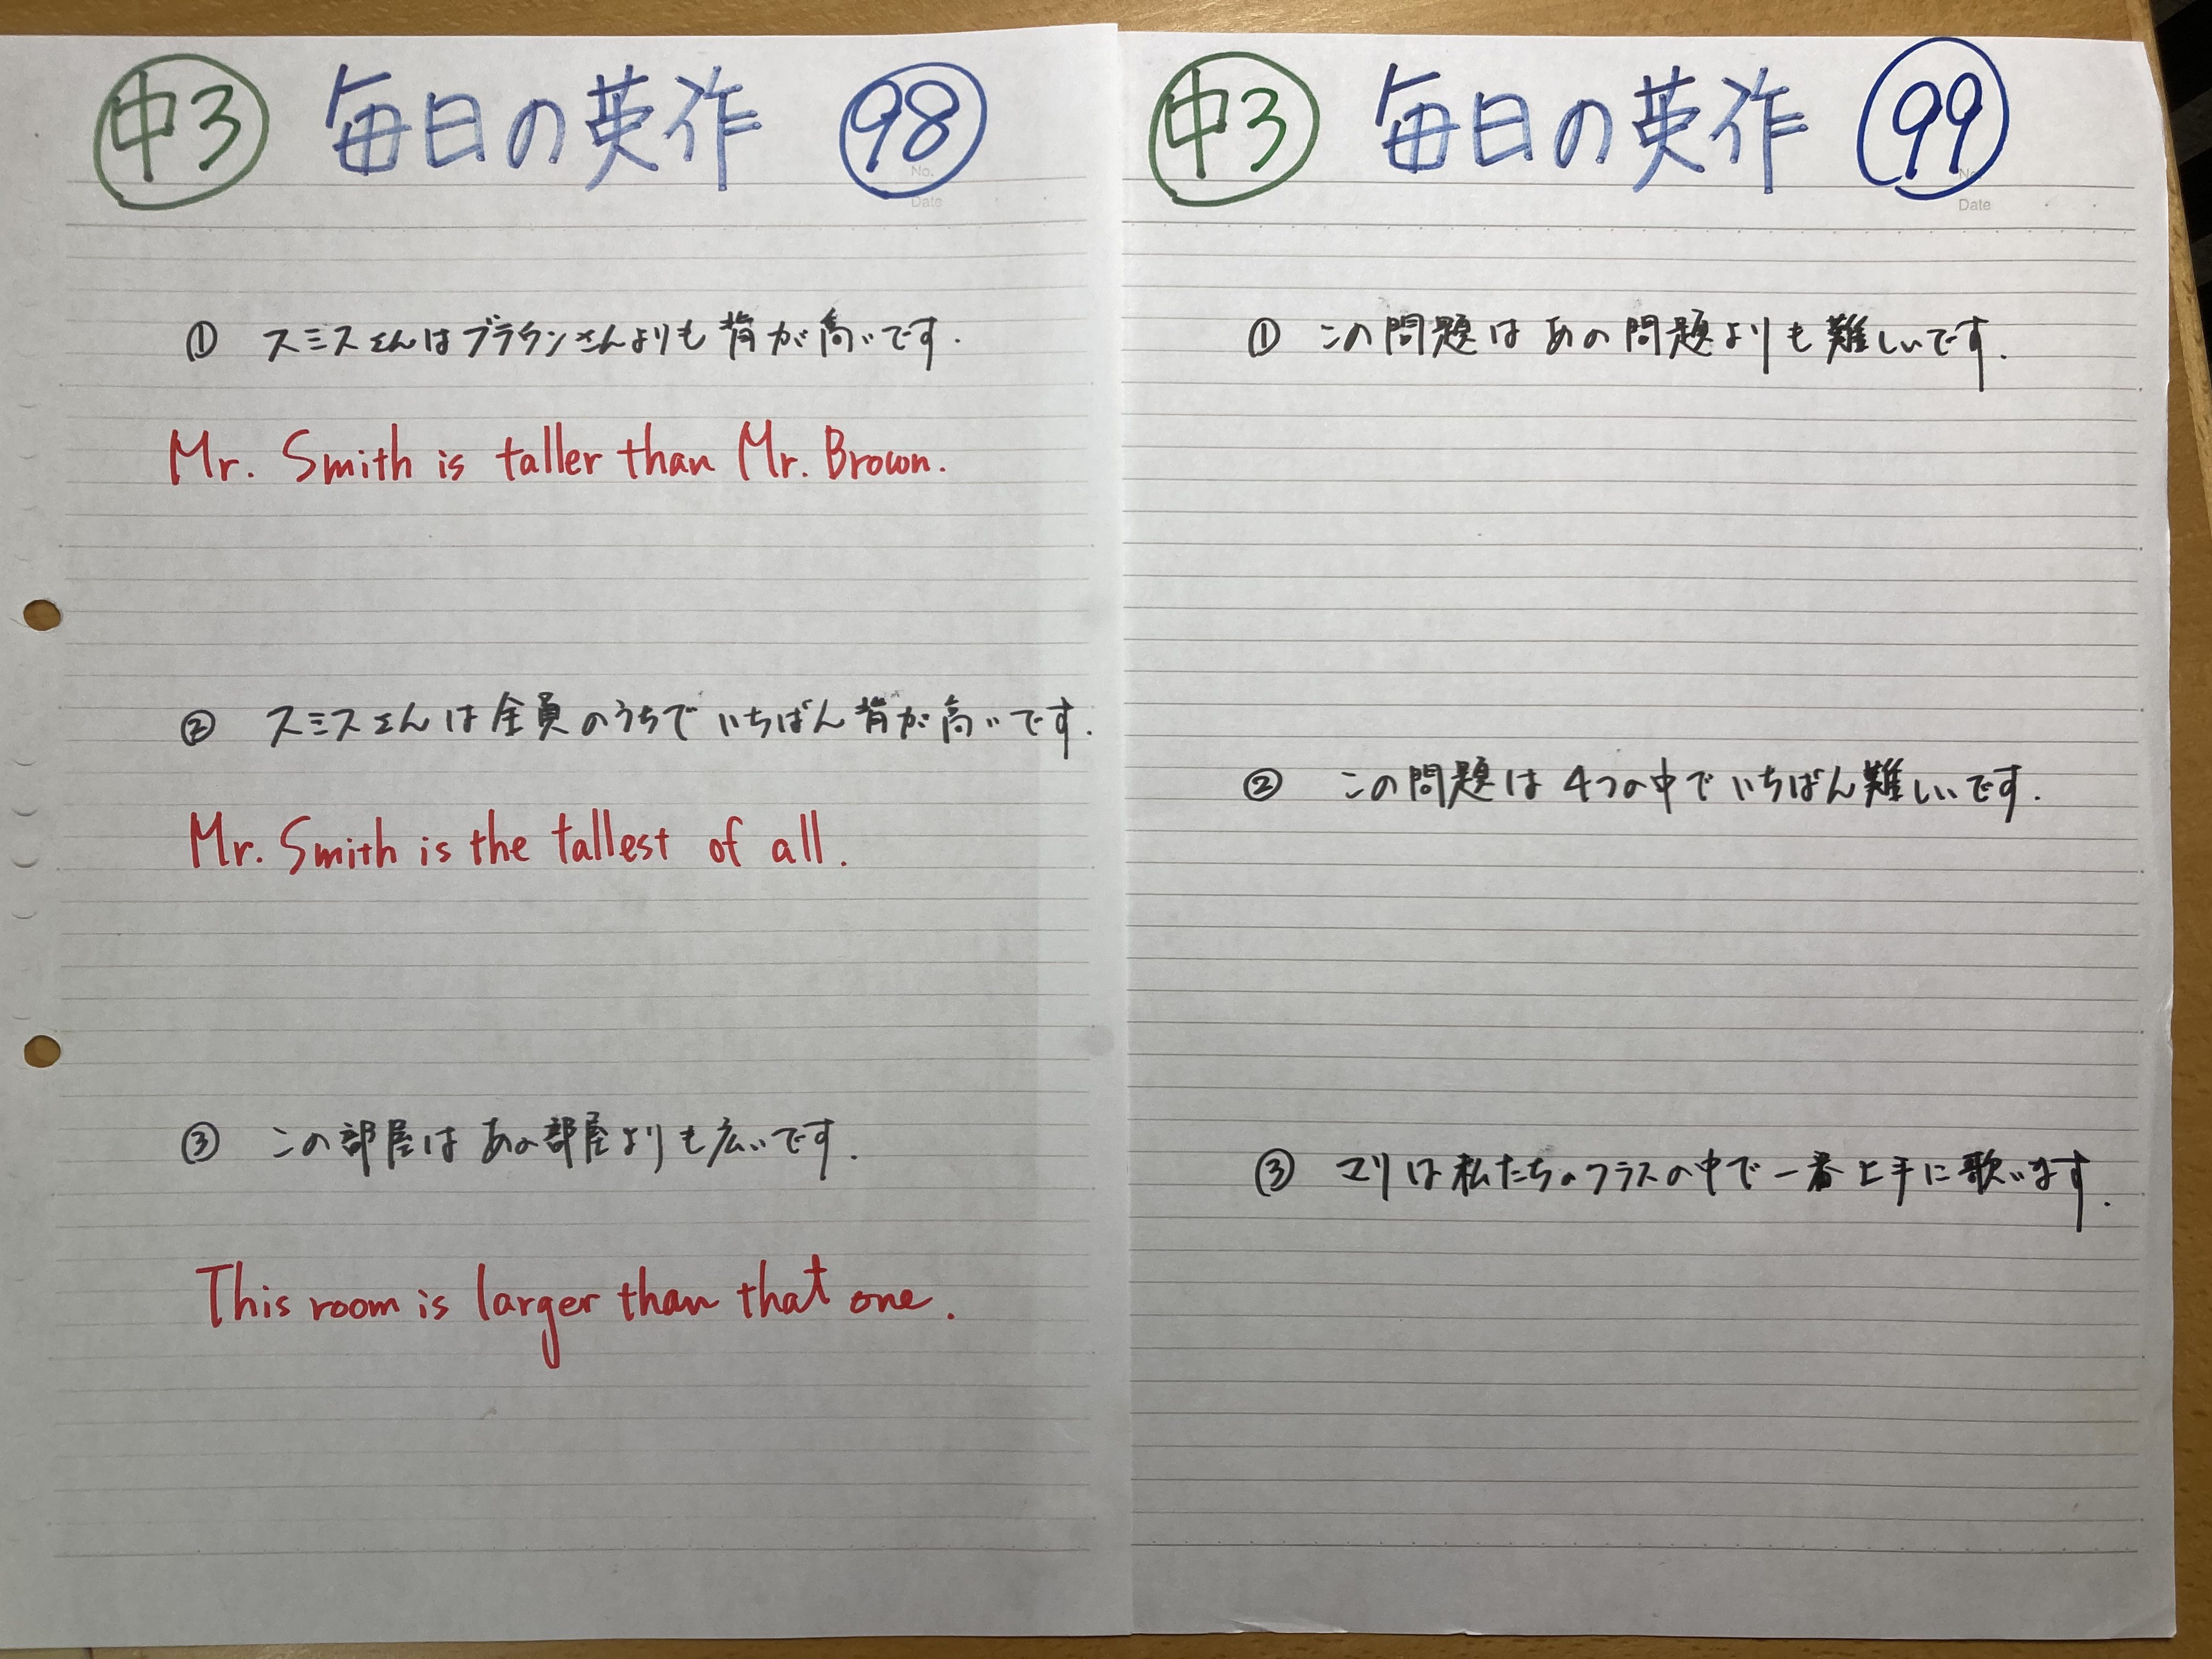 中3 毎日の英作 98
No.
Date
① スミスさんはブラウンさんよりも背が高いです.
Mr. Smith is taller than Mr. Brown.
② スミスさんは全員のうちでいちばん背が高いです.
Mr. Smith is the tallest of all.
③ この部屋はあの部屋よりも広いです.
This room is larger than that one.
中3 毎日の英作 99
No.
Date
① この問題はあの問題よりも難しいです.
② この問題は4つの中でいちばん難しいです.
③ マリは私たちのクラスの中で一番上手に歌います.